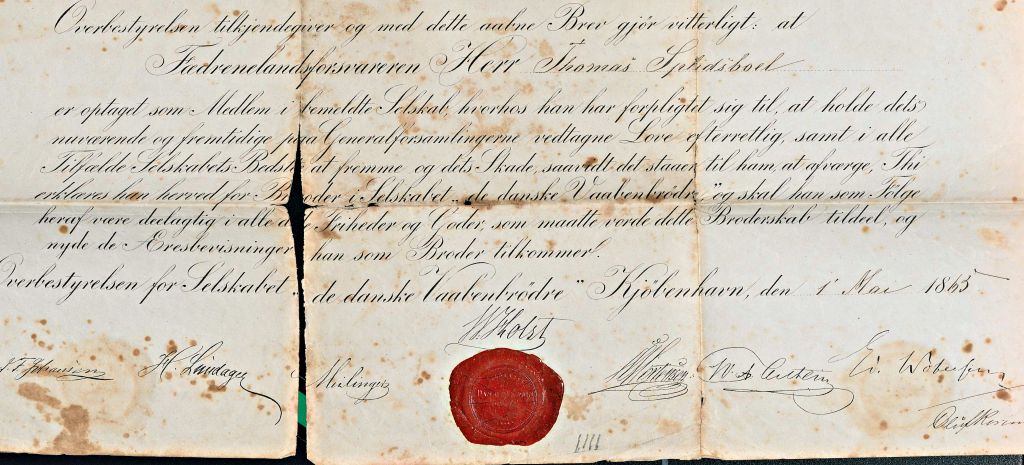 Overbestyrelsen tilkjendegiver og med dette aabne Brev gjør vitterligt: at
Fædrenelandsforsvareren Herr Thomas
er optaget som Medlem i bemeldte Selskab, hvorhos han har forpligtet sig til, at holde dets
nuværende og fremtidige paa Generalforsamlingerne vedtagne Love efterrettlig, samt i alle
Tilfælde Selskabets Bedste at fremme og dets Skade, saavidt det staaer til ham, at afværge, Thi
erklæres han herved for Broder i Selskabet „de danske Vaabenbrødre," og skal han som Følge
heraf være deelagtig i alle de Friheder og Goder, som maatte vorde dette Broderskab tildeel, og
nyde de Æresbevisninger han som Broder tilkommer.
Overbestyrelsen for Selskabet „de danske Vaabenbrødre" Kjøbenhavn, den 1' Mai 1865
Holst
H. Lindager